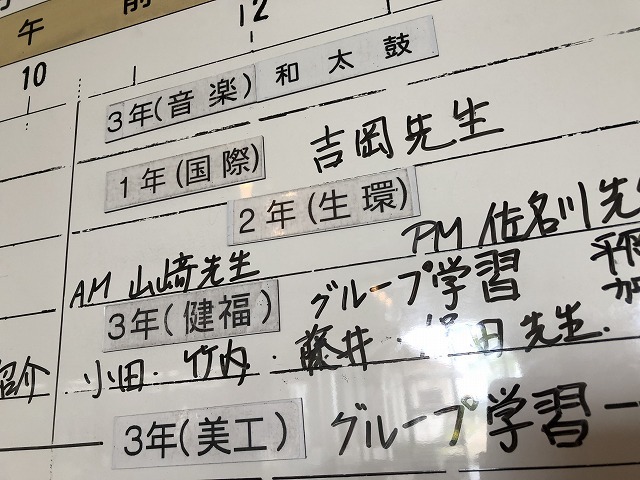 午 前
10 12
3年(音 楽) 和 太 鼓
1年(国 際) 吉岡先生
2年(生 環)
AM 山﨑先生 PM 佐名川先
3年(健福) グループ学習
紹介 小田・竹内・藤井・ 田先生.
3年(美工) グループ学習ー